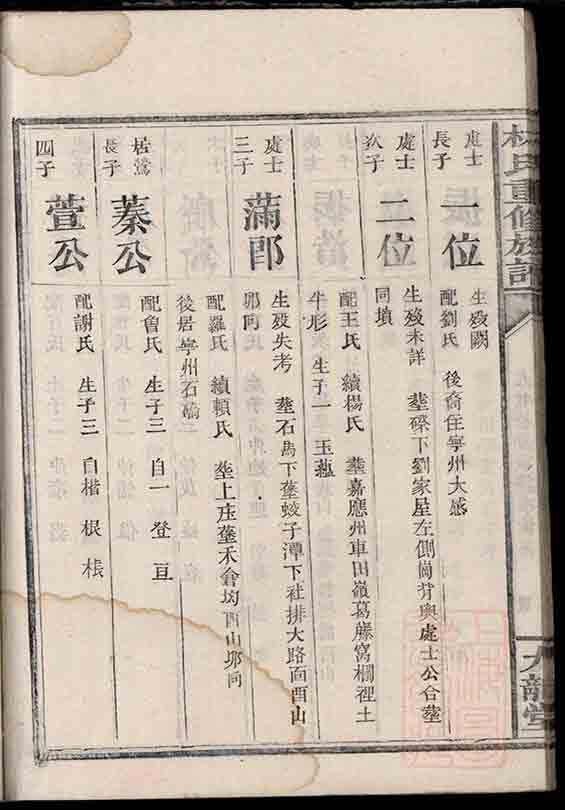 林氏重修族譜
九龍堂
處士長子
一位
生歿闕
配劉氏 後裔住寧州大感
處士次子
二位
生歿未詳 塟磜下劉家屋左側崗背與處士公合塟
同墳
配王氏 續楊氏 塟嘉應州車田嶺葛藤窩欄裡土
牛形 生子一 玉蘊
處士三子
蒲郎
生歿失考 塟石馬下墪蛟子潭下社排大路面酉山
郊向
配羅氏 續賴氏 塟上庄墪禾倉均酉山郊向
後居寧州石
居鶯長子
蓁公
配魯氏 生子三 自一 登 亘
四子
萱公
配謝氏 生子三 自楷 根 棖